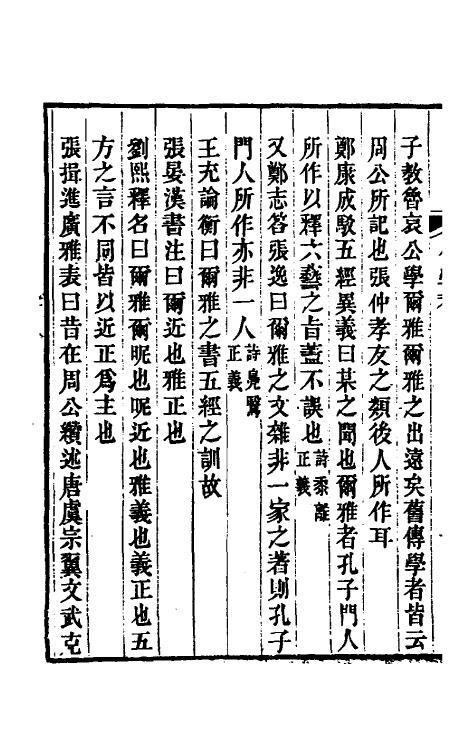 子教魯哀公學爾雅爾雅之出遠矣舊傳學者皆云
周公所記也張仲孝友之類後人所作耳
鄭康成駮五經異義曰某之聞也爾雅者孔子門人
所作以釋六藝之旨蓋不誤也詩黍離正義
又鄭志答張逸曰爾雅之文雜非一家之著則孔子
門人所作亦非一人詩鳧鷖正義
王充論衡曰爾雅之書五經之訓故
張晏漢書注曰爾近也雅正也
劉熙釋名曰爾雅爾昵也昵近也雅義也義正也五
方之言不同皆以近正爲主也
張揖進廣雅表曰昔在周公纘述唐虞宗翼文武克